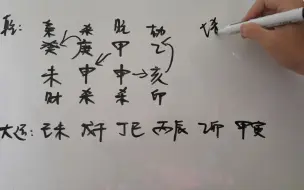 乾: 枭 杀 日 劫
癸 庚 甲 乙
未 申 申 亥
财 杀 杀 卯
大运: 己未 戊午 丁巳 丙辰 乙卯 甲寅